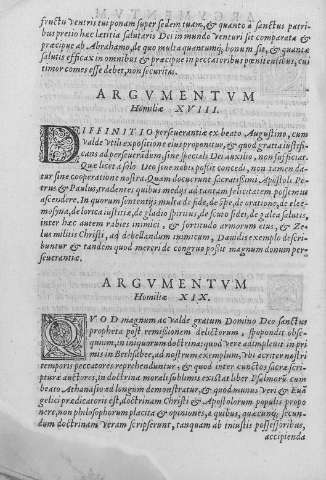 fructu ventris tui ponam super sedem tuam, & quanto à sanctus patri-
bus precio hæc letitia salutaris Dei in mundo venturi sit comparata &
præcipuè ab Abrahamo, de quo multa quantumq; bonum sit, & quantæ
salutis efficax in omnibus & præcipue in peccatoribus pænitentibus, cui
timor comes esse debet, non securitas.
ARGVMENTVM
Homiliæ XVIII.
DIFFINITIO perseuerantiæ ex beato Augustino, cum
valde vtili expositione eius proponitur, & quod gratia iustifi-
cans ad perseuerandum, sine speciali Dei auxilio, non sufficiat.
Quæ licet à solo Deo sine nobis possit concedi, non tamen da-
tur sine cooperatione nostra. Quam docuerunt sacratissimi Apostoli Pe-
trus & Paulus, tradentes quibus medijs ad tantam felicitatem possemus
ascendere. In quorum sententijs multa de fide, de spe, de oratione, de elee-
mosyna, de lorica iustitiæ, de gladio spiritus, de scuto fidei, de galea salutis,
inter hæc autem rabies inimici, & fortitudo armorum eius, & Ze-
lus militis Christi, ad debellandum inimicum, Dauidis exemplo descri-
buntur & tandem quod mereri de congruo possit magnum donum per-
seuerantiæ.
ARGVMENTVM
Homiliæ XIX.
QVOD magnum ac valde gratum Domino Deo sanctus
propheta post remissionem delictorum, spopondit obse-
quium, in iniquorum doctrina: quod verè adimpleuit in pri-
mis in Berhsabee, ad nostrum exemplum, Vbi acriter nostri
temporis peccatores reprehenduntur, & quod inter cunctos sacræ scri-
pturæ auctores, in doctrina morali sublimis existat liber Psalmorũ cum
beato Athanasio ad longum demonstratur, & quod munus veri & Euã
gelici prædicatoris est, doctrinam Christi & Apostolorum populis propo
nere, non philosophorum placita & opiniones, à quibus, quæcunq; secun-
dum doctrinam veram scripserunt, tanquam ab iniustis possessoribus,
accipienda